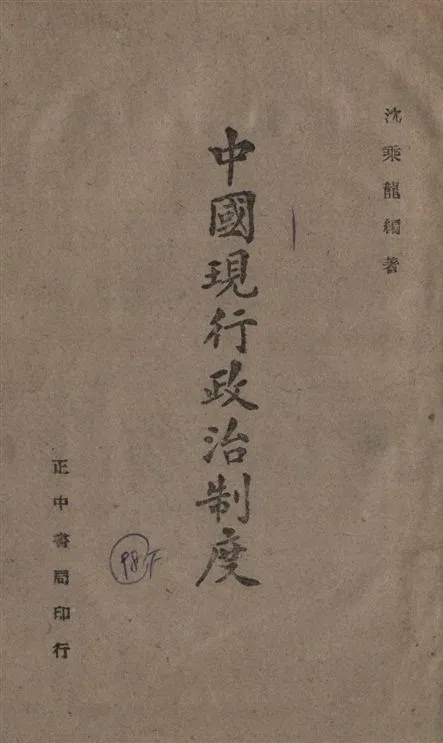 沈乘龍編著
中國現行政治制度
正中書局印行
98